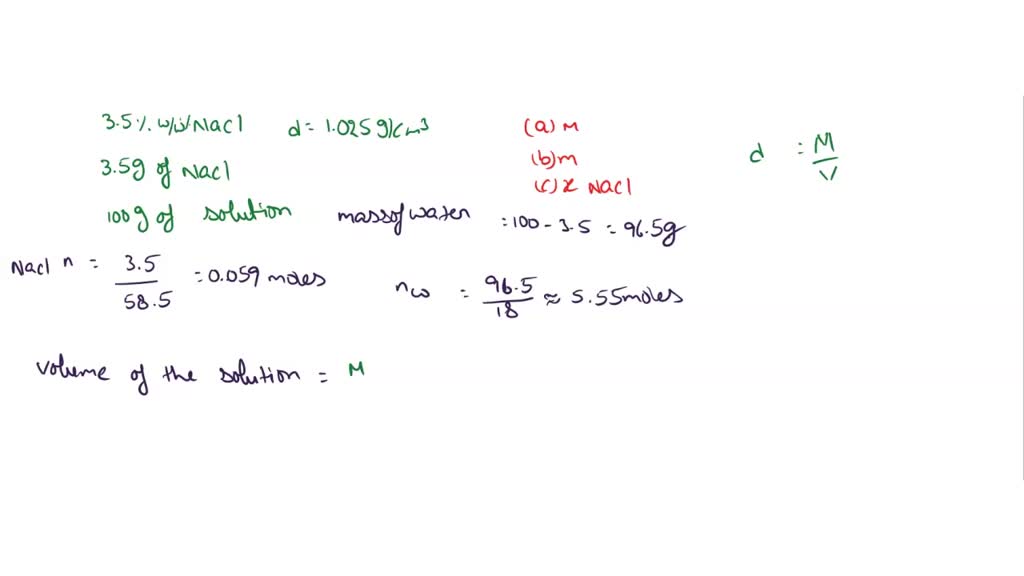 3.5% w/w NaCl d = 1.025 g/cm³ (a) M
3.5g of NaCl (b) m
(c) x NaCl
d = M/V
100g of solution mass of water = 100 - 3.5 = 96.5g
NaCl n = 3.5/58.5 = 0.059 moles
nw = 96.5/18 ≈ 5.55 moles
volume of the solution = M